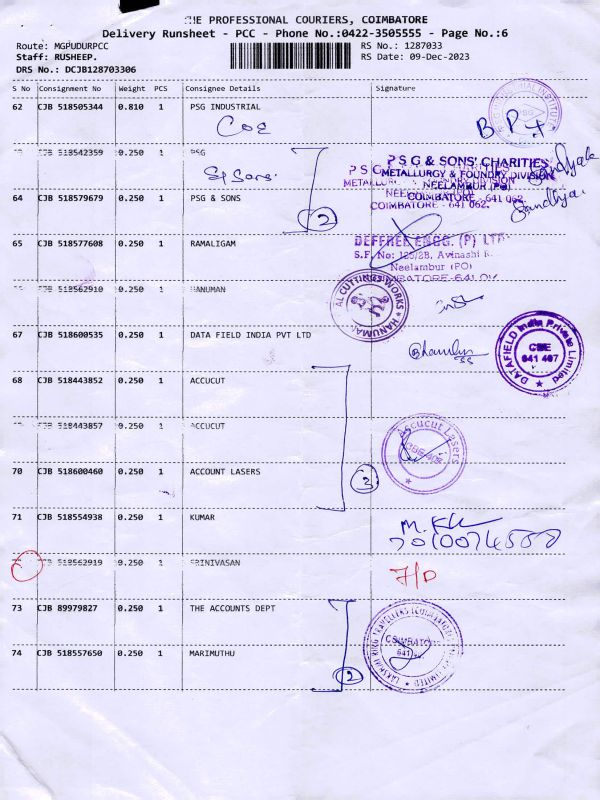 THE PROFESSIONAL COURIERS, COIMBATORE
Delivery Runsheet - PCC - Phone No.:0422-3505555 - Page No.:6
Route: MGPUDURPCC
RS No.: 1287033
Staff: RUSHEEP.
RS Date: 09-Dec-2023
DRS No.: DCJB128703306
S No Consignment No Weight PCS Consignee Details Signature
62 CJB 518505344 0.810 1 PSG INDUSTRIAL
COE
CJB 518542359 0.250 1 PSG
Sandhya
64 CJB 518579679 0.250 1 PSG & SONS
2
P S G & SONS' CHARITIES
METALLURGY & FOUNDRY DIVISION
NEELAMBUR (PO)
COIMBATORE - 641 062.
Sandhya
65 CJB 518577608 0.250 1 RAMALIGAM
DEFFREE ENGG. (P) LTD.
S.F. No: 125/2B, Avinashi R
Neelambur (PO)
COIMBATORE-641
CJB 518562910 0.250 1 HANUMAN
AL CUTTINGS WORKS ★ HANUMAN
67 CJB 518600535 0.250 1 DATA FIELD INDIA PVT LTD
DATAFIELD India Private Limited
CBE
641 407
68 CJB 518443852 0.250 1 ACCUCUT
CJB 518443857 0.250 1 ACCUCUT
Accucut Lasers
70 CJB 518600460 0.250 1 ACCOUNT LASERS
3
71 CJB 518554938 0.250 1 KUMAR
CJB 518562919 0.250 1 SRINIVASAN
73 CJB 89979827 0.250 1 THE ACCOUNTS DEPT
COIMBATORE
641
74 CJB 518557650 0.250 1 MARIMUTHU
2